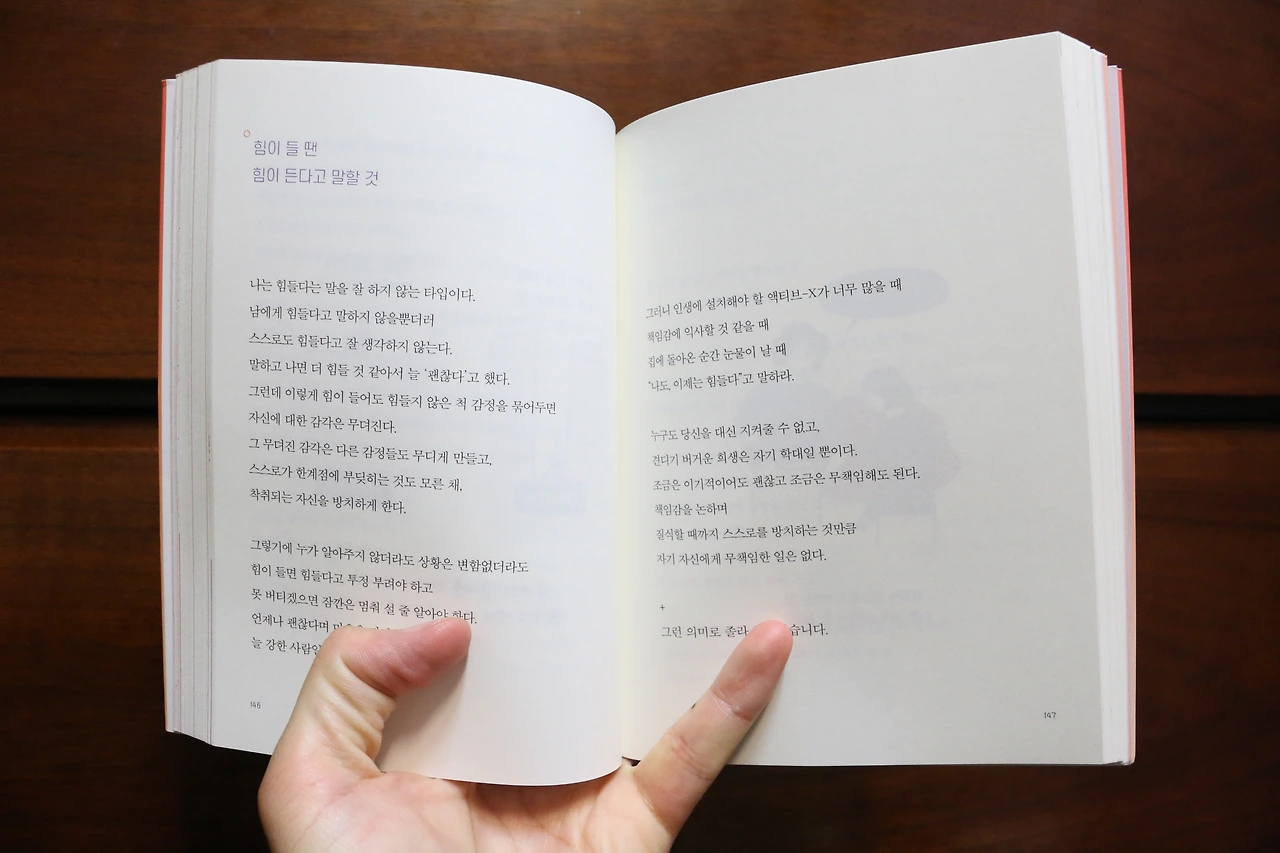 힘이 들 땐
힘이 든다고 말할 것
나는 힘들다는 말을 잘 하지 않는 타입이다.
남에게 힘들다고 말하지 않을뿐더러
스스로도 힘들다고 잘 생각하지 않는다.
말하고 나면 더 힘들 것 같아서 늘 ‘괜찮다’고 했다.
그런데 이렇게 힘이 들어도 힘들지 않은 척 감정을 묶어두면
자신에 대한 감각은 무뎌진다.
그 무뎌진 감각은 다른 감정들도 무디게 만들고,
스스로가 한계점에 부딪히는 것도 모른 채,
착취되는 자신을 방치하게 한다.
그렇기에 누가 알아주지 않더라도 상황은 변함없더라도
힘이 들면 힘들다고 투정 부려야 하고
못 버티겠으면 잠깐은 멈춰 설 줄 알아야 한다.
언제나 괜찮다며
늘 강한
146
그러니 인생에 설치해야 할 액티브-X가 너무 많을 때
책임감에 익사할 것 같을 때
집에 돌아온 순간 눈물이 날 때
“나도, 이제는 힘들다”고 말하라.
누구도 당신을 대신 지켜줄 수 없고,
견디기 버거운 희생은 자기 학대일 뿐이다.
조금은 이기적이어도 괜찮고 조금은 무책임해도 된다.
책임감을 논하며
질식할 때까지 스스로를 방치하는 것만큼
자기 자신에게 무책임한 일은 없다.
+
그런 의미로 졸라 습니다.
147